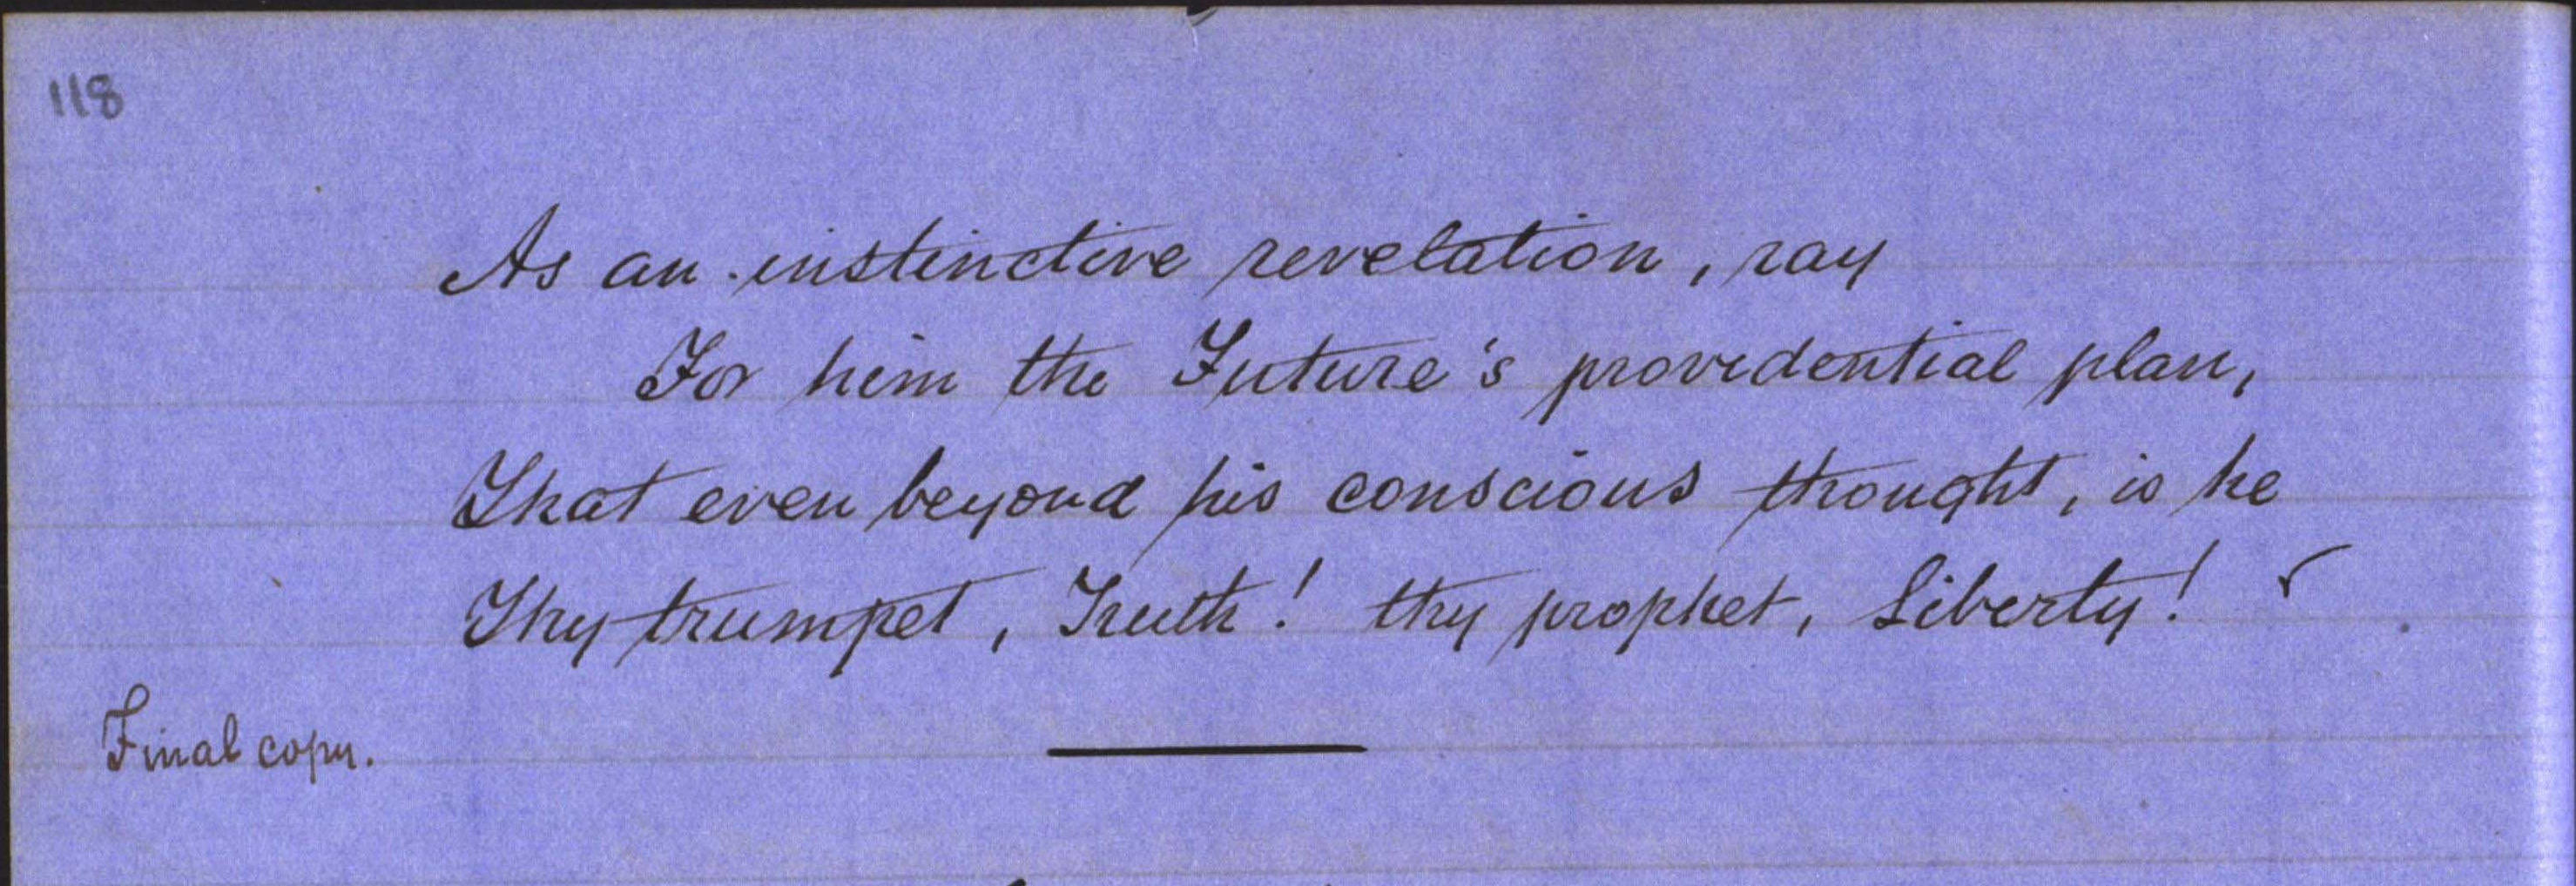 118
As an instinctive revelation, ray
For him the Future's providential plan,
That even beyond his conscious thought, is he
Thy trumpet, Truth! thy prophet, Liberty!
Final copy.